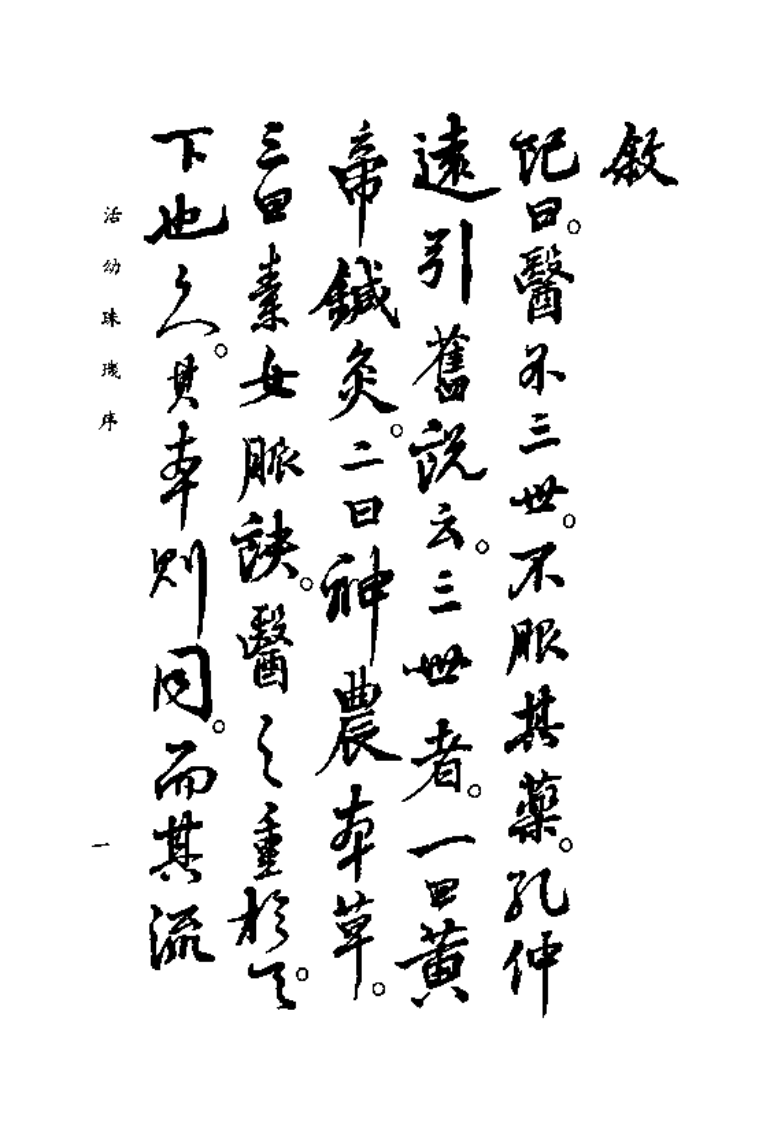 敘
記曰。醫不三世。不服其藥。孔仲
遠引舊說云。三世者。一曰黃
帝鍼灸。二曰神農本草。
三曰素女脈訣。醫之重於天。
下也久。其本則同。而其流
活幼珠璣序
一